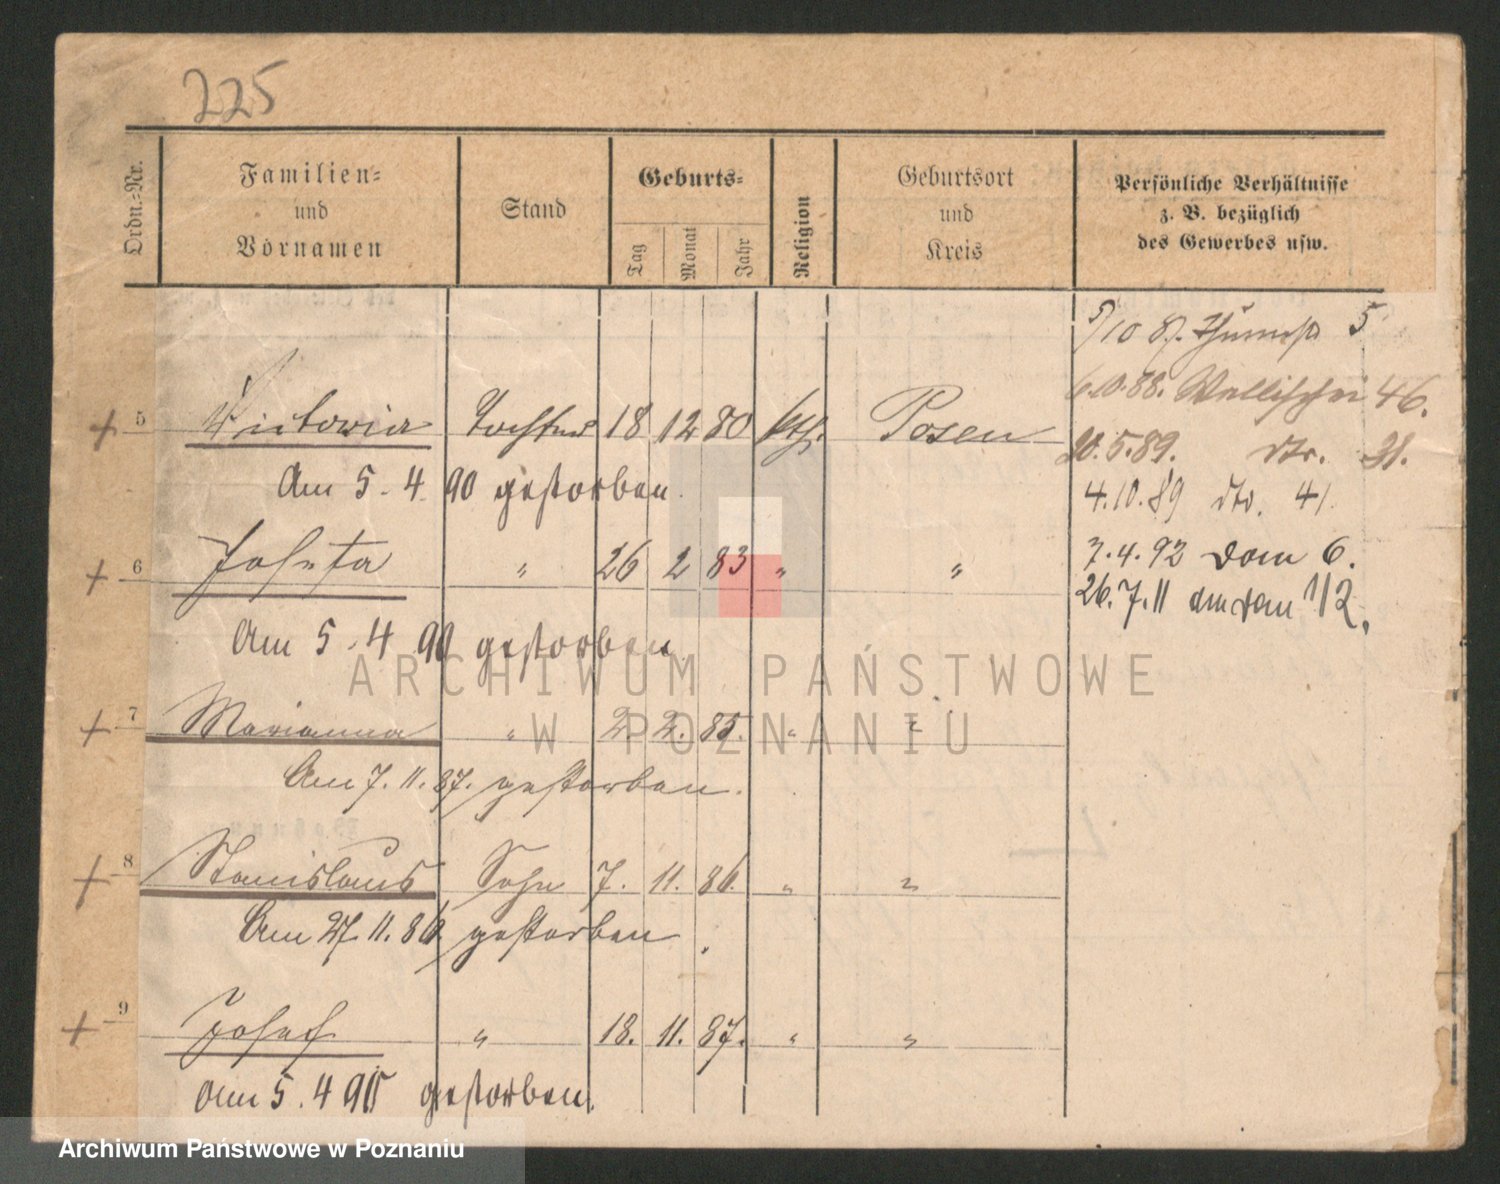 225
Ordn.-Nr.
Familien-
und
Vornamen
Stand
Geburts-
Tag
Monat
Jahr
Religion
Geburtsort
und
Kreis
Persönliche Verhältnisse
z. B. bezüglich
des Gewerbes usw.
5/10 87. 5
6.10.88. Wallischei 46.
+ 5 Victoria Tochter 18 12 80 kth. Posen
20.5.89. dto. 31.
Am 5. 4. 90 gestorben.
4.10.89 dto. 41.
+ 6 Josefa " 26 2 83 " "
7.4.92 Dom 6.
26.7.11 112.
Am 5. 4 90 gestorben
ARCHIWUM PAŃSTWOWE
W POZNANIU
+ 7 Marianna " 2. 2. 85. " "
Am 7. 11. 87. gestorben.
+ 8 Stanislaus Sohn 7. 11. 86. " "
Am 27. 11. 86. gestorben.
+ 9 Josef " 18. 11. 87. " "
Am 5. 4 90 gestorben.
Archiwum Państwowe w Poznaniu